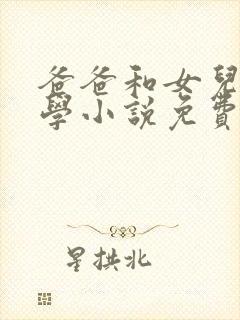 爸爸和女兒
學小說免費
星拱北